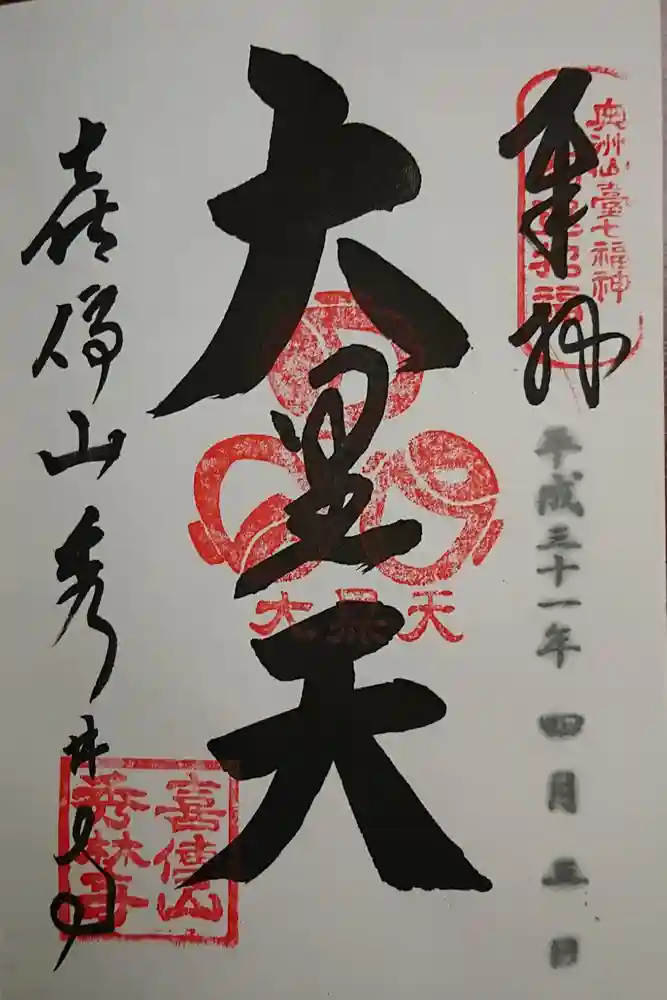 奉拝
奥洲仙臺七福神
開運招福
平成三十一年 四月 五日
大黒天
大黒天
喜傳山秀林寺
喜傳山
秀林寺